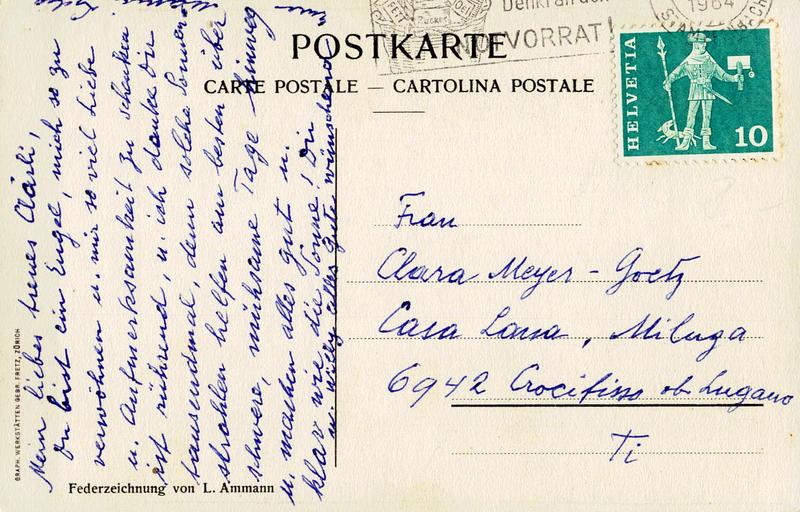 Denkt an den
NOTVORRAT!
Zucker
1964
POSTKARTE
CARTE POSTALE — CARTOLINA POSTALE
HELVETIA
10
Frau
Clara Meyer-Goetz
Casa Lana, Miluga
6942 Crocifisso ob Lugano
Ti
Mein liebes treues Clärli,
Du bist ein Engel, mich so zu
verwöhnen u. mir so viel Liebe
u. Aufmerksamkeit zu schenken
ist rührend, u. ich danke Dir
tausendmal, denn solche Sonnen-
strahlen helfen am besten über
schwere, mühsame Tage hinweg
u. machen alles gut u.
klar wie die Sonne! Dir
u. Willy alles Gute wünschend
GRAPH. WERKSTÄTTEN GEBR. FRETZ, ZÜRICH
Federzeichnung von L. Ammann